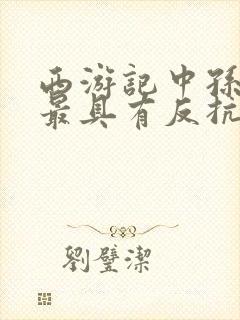 西游記中孫
最具有反抗
劉璧潔